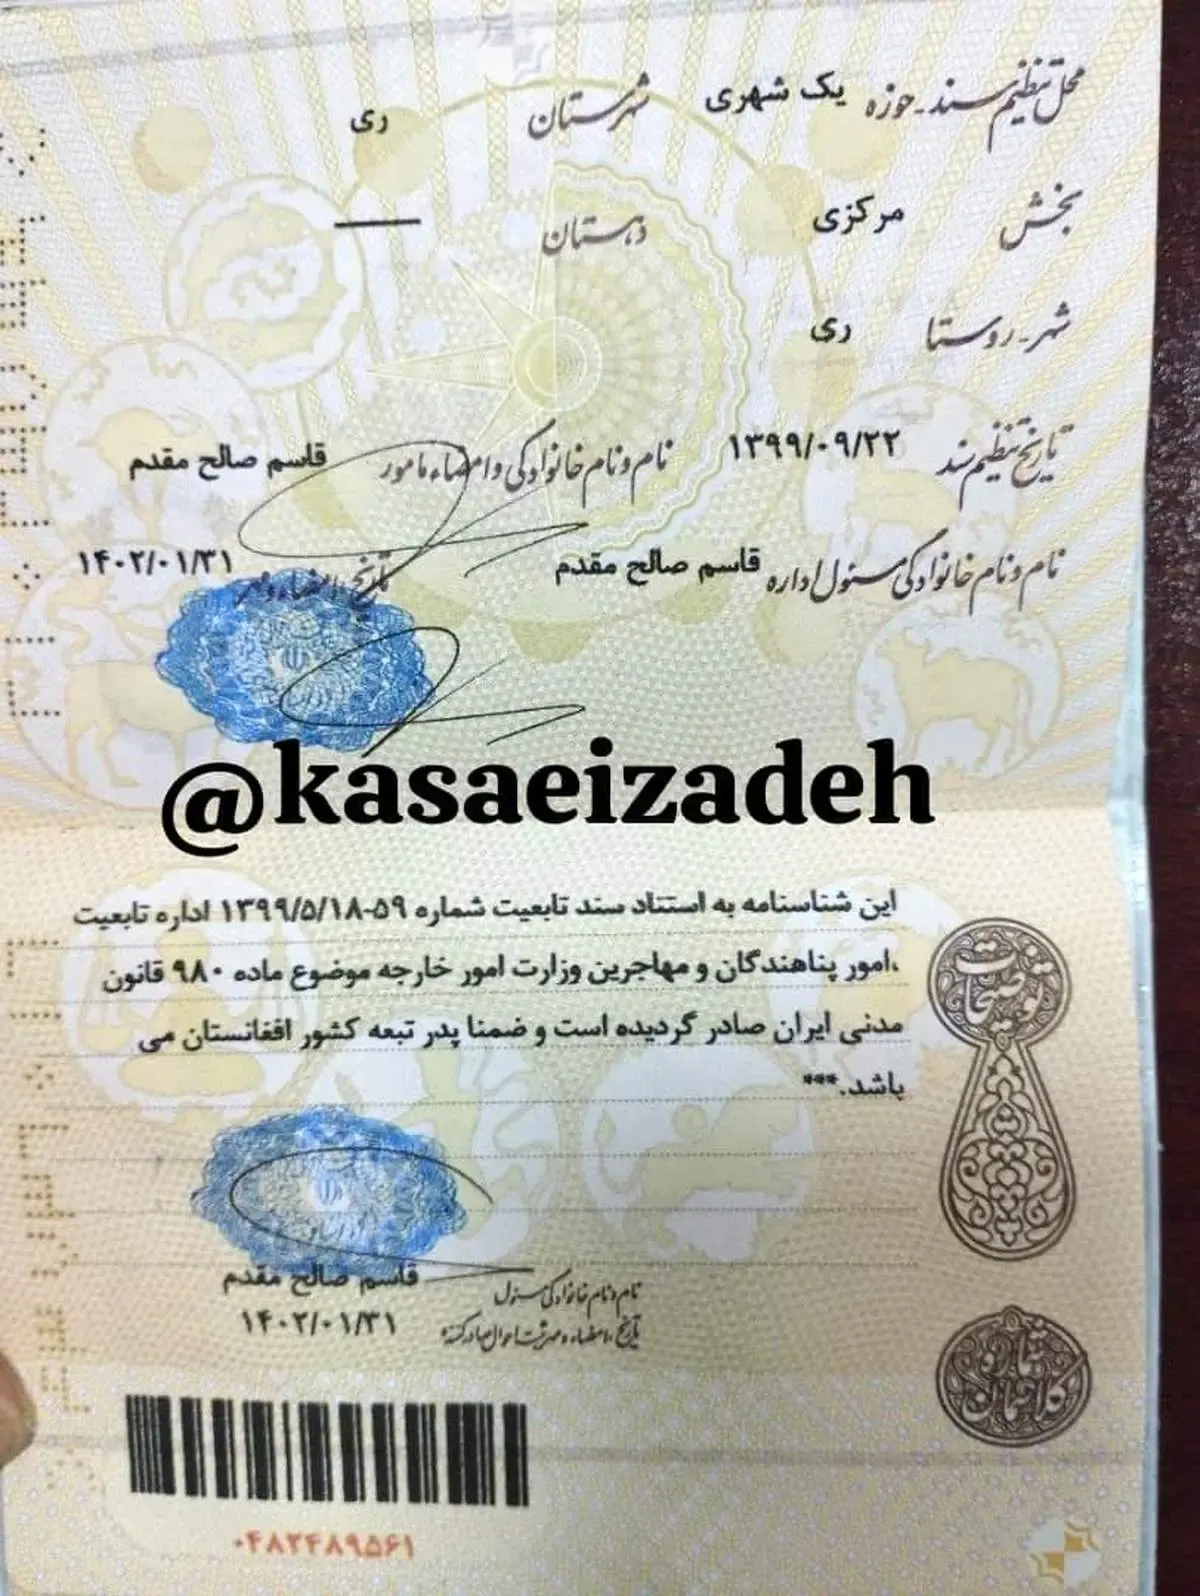 محل تنظیم سند - حوزه یک شهری شهرستان ری
بخش مرکزی دهستان ——
شهر - روستا ری
تاریخ تنظیم سند ۱۳۹۹/۰۹/۲۲ نام و نام خانوادگی و امضاء مامور قاسم صالح مقدم
نام و نام خانوادگی مسئول اداره قاسم صالح مقدم تاریخ، امضاء و مهر ۱۴۰۲/۰۱/۳۱
@kasaeizadeh
توضیحات
این شناسنامه به استناد سند تابعیت شماره ۵۹-۱۳۹۹/۵/۱۸ اداره تابعیت
،امور پناهندگان و مهاجرین وزارت امور خارجه موضوع ماده ۹۸۰ قانون
مدنی ایران صادر گردیده است و ضمنا پدر تبعه کشور افغانستان می
باشد.***
نام و نام خانوادگی مسئول قاسم صالح مقدم
تاریخ، امضاء و مهر ثبت احوال صادرکننده ۱۴۰۲/۰۱/۳۱
شماره
۰۴۸۲۴۸۹۵۶۱